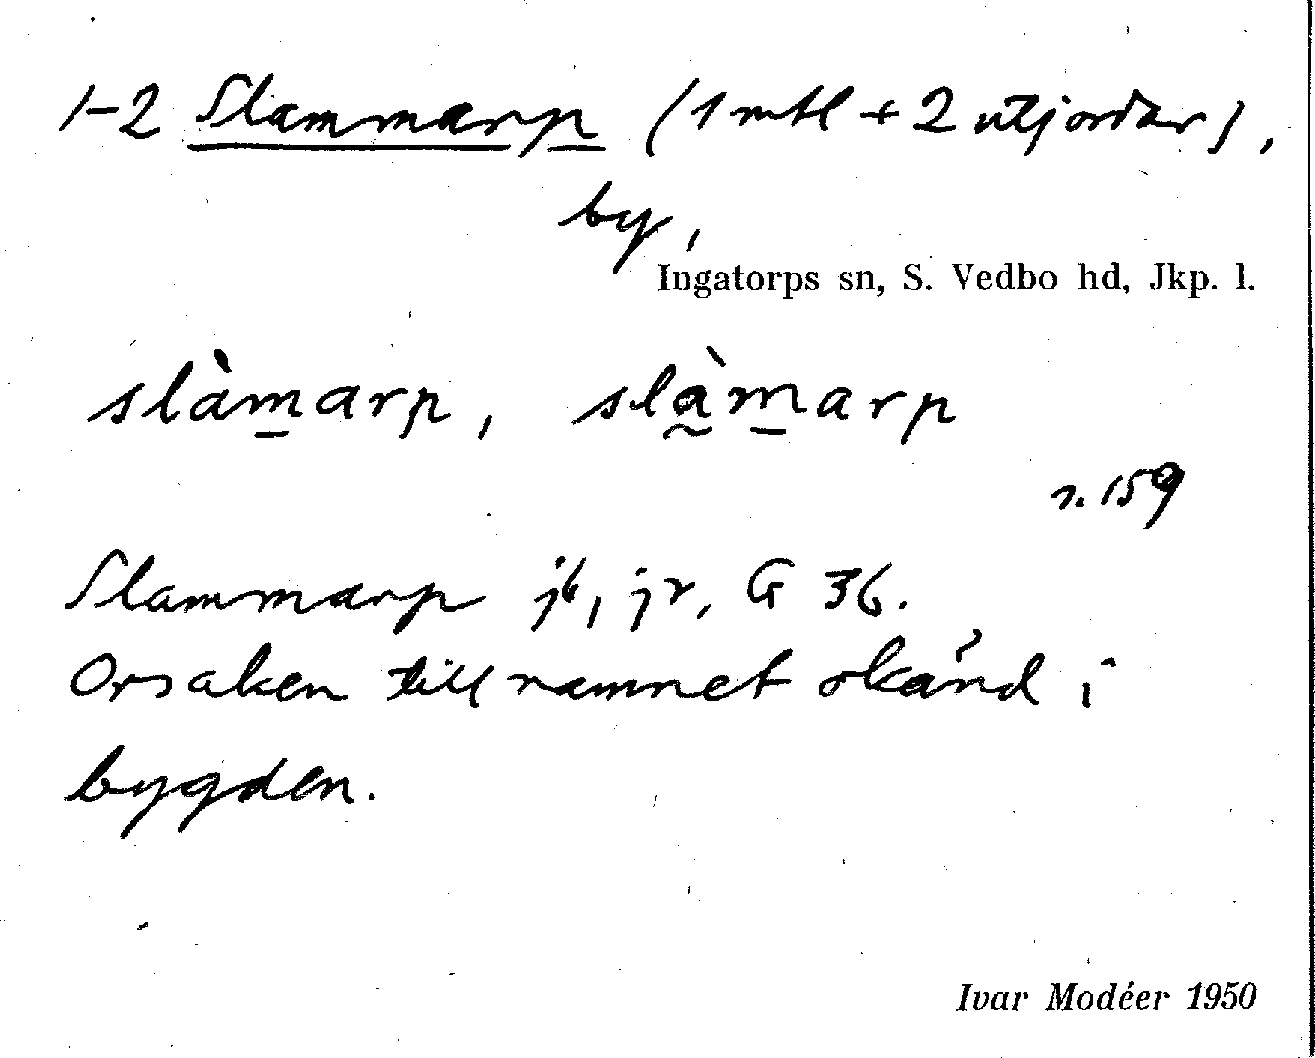 1-2 Slammarp (1 mtl + 2 utjordar),
by,
Ingatorps sn, S. Vedbo hd, Jkp. l.
slàm̲arp, slà̰m̲arp
r. 159
Slammarp jb, jr, G 36.
Orsaken till namnet okänd i
bygden.
Ivar Modéer 1950